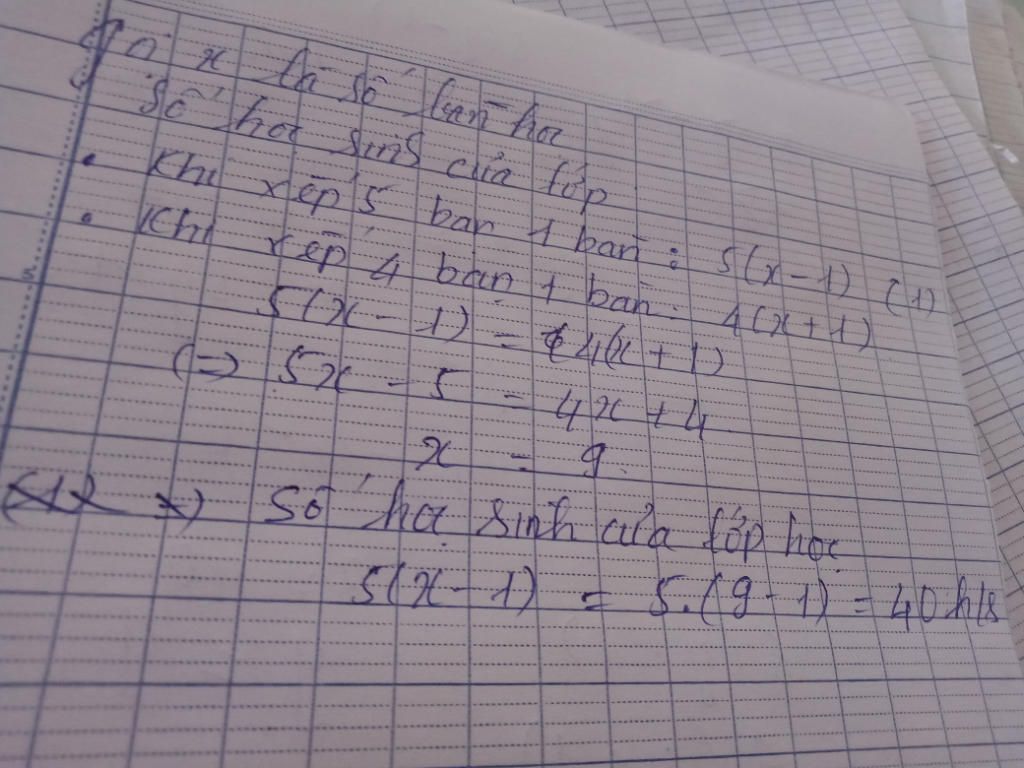 Gọi x là số bàn học
Số học sinh của lớp
• Khi xếp 5 bạn 1 bàn: 5(x-1) (1)
• Khi xếp 4 bạn 1 bàn: 4(x+1)
5(x-1) = 4(x+1)
(=) 5x - 5 = 4x + 4
x = 9.
Số học sinh của lớp học
5(x-1) = 5.(9-1) = 40 h/s